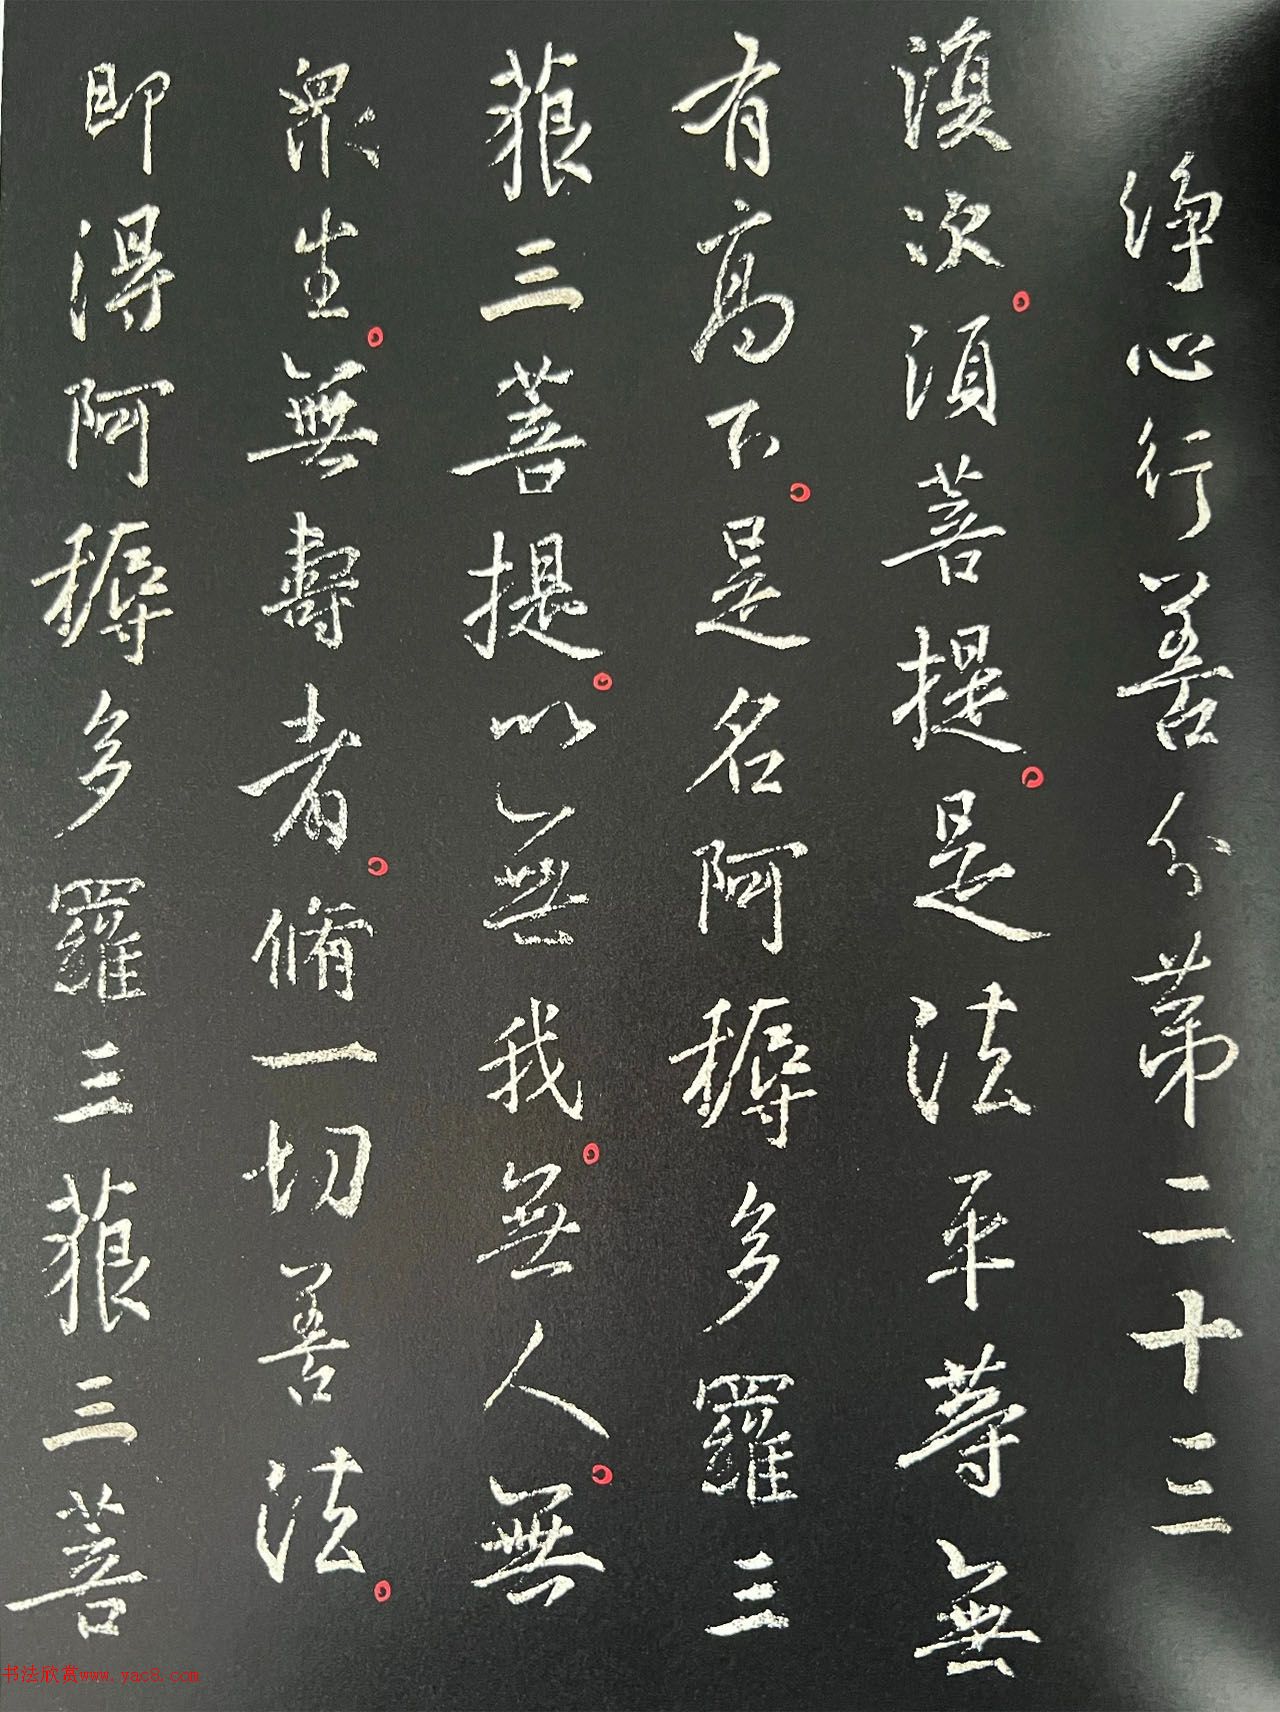 淨心行善分第二十三
復次。須菩提。是法平等無
有高下。是名阿耨多羅三
藐三菩提。以無我。無人。無
眾生。無壽者。脩一切善法。
即得阿耨多羅三藐三菩
书法欣赏www.yac8.com